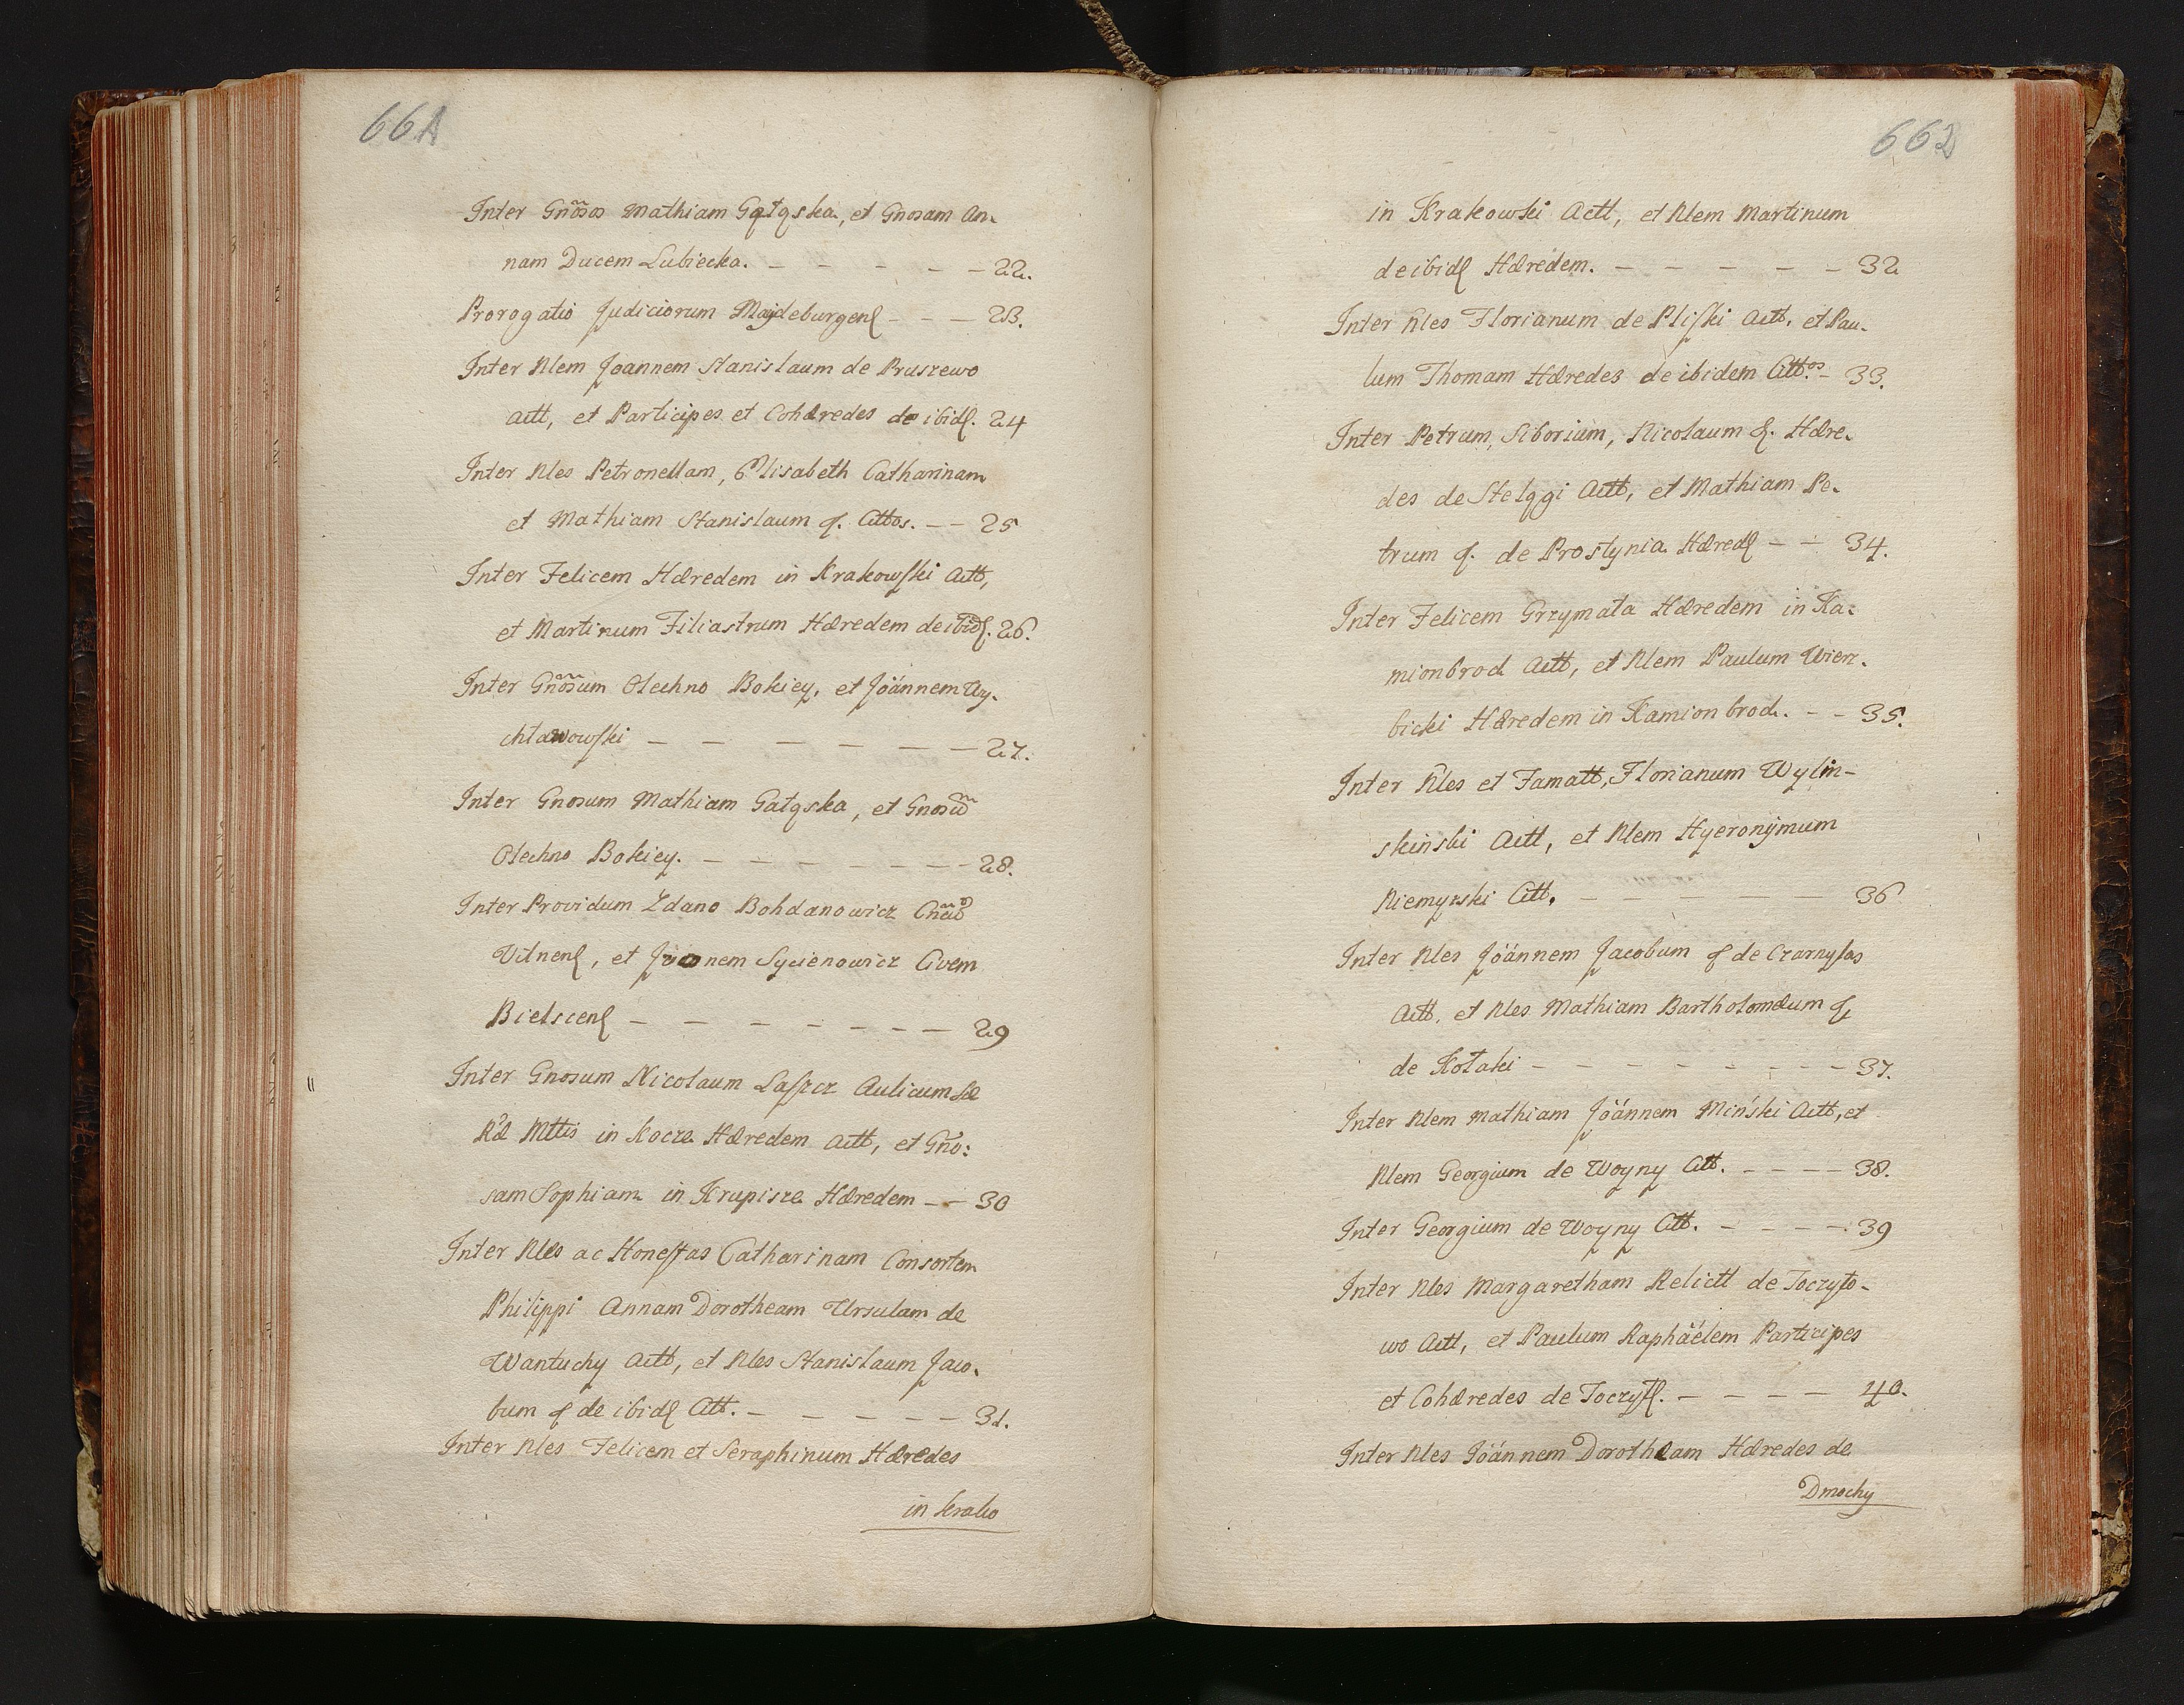 661
Inter Gnosos Mathiam Gatąska, et Gnosam An-
nam Ducem Lubiecka. - - - - - 22.
Prorogatio Judiciorum Majdeburgenß - - - 23.
Inter Nlem Joannem Stanislaum de Pruszewo
Actt, et Participes et Cohæredes de ibidß. 24
Inter Nles Petronellam, Elisabeth Catharinam
et Mathiam Stanislaum q. Cittos. - - 25
Inter Felicem Hæredem in Krakowski Actt,
et Martinum Filiastrum Hæredem de ibidß. 26.
Inter Gnosum Olechno Bokiey, et Joannem Wy-
chławowski - - - - - - 27.
Inter Gnosum Mathiam Gatąska, et Gnosū
Olechno Bokiey. - - - - - - - 28.
Inter Providum Zdano Bohdanowicz
Vilnenß, et nem Sycienowicz Civem
Bielscenß - - - - - - - 29
Inter Gnosum Nicolaum Laszcz Aulicum Sæ
Ræ Mttis in Kocza Hæredem Actt, et Gno:
sam Sophiam in Krupisza Hæredem - - 30
Inter Nles ac Honestas Catharinam Consortem
Philippi Annam Dorotheam Ursulam de
Wantuchy Actt, et Nles Stanislaum Jaco-
bum q de ibidß Citt. - - - - - 31.
Inter Nles Felicem et Seraphinum Hæredes
in Krako
662
in Krakowski Actt, et Nlem Martinum
de ibidß Hæredem. - - - - - 32
Inter Nles Florianum de Pliski Actt, et Pau-
lum Thomam Hæredes de ibidem Citt.os - 33.
Inter Petrum, Siborium, Nicolaum q. Hære-
des de Stelągi Actt, et Mathiam Pe-
trum q. de Prostynia Hæredß - - 34.
Inter Felicem Grzymała Hæredem in Ka-
mionbrod Actt, et Nlem Paulum Wierz-
bicki Hæredem in Kamionbrod. - - 35.
Inter Nles et Famatt, Florianum Wylin-
skinski Actt, et Nlem Hyeronÿmum
Niemyrski Citt. - - - - - 36
Inter Nles Joannem Jacobum q de Czarnylas
Actt, et Nles Mathiam Bartholomæum q
de Kotaki - - - - - - - - - 37.
Inter Nlem Mathiam Joannem Miński Actt, et
Nlem Georgium de Woyny Citt. - - - - 38.
Inter Georgium de Woyny Citt. - - - - 39
Inter Nles Margaretham Relictt de Toczyło-
wo Actt, et Paulum Raphäelem Participes
et Cohæredes de Toczyłß. - - - - 40.
Inter Nles Joannem Dorotheam Hæredes de
Dmochy